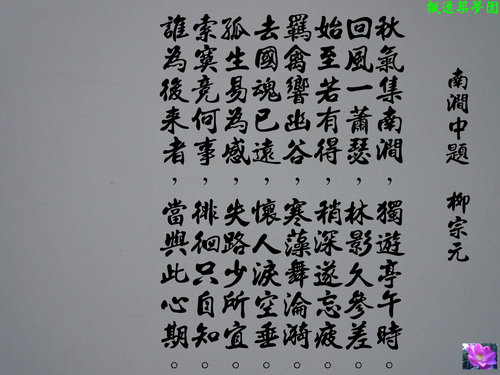 南澗中題 柳宗元
秋氣集南澗，獨遊亭午時。
回風一蕭瑟，林影久參差。
始至若有得，稍深遂忘疲。
羈禽響幽谷，寒藻舞淪漪。
去國魂已遠，懷人淚空垂。
孤生易為感，失路少所宜。
索寞竟何事，徘徊只自知。
誰為後来者，當與此心期。